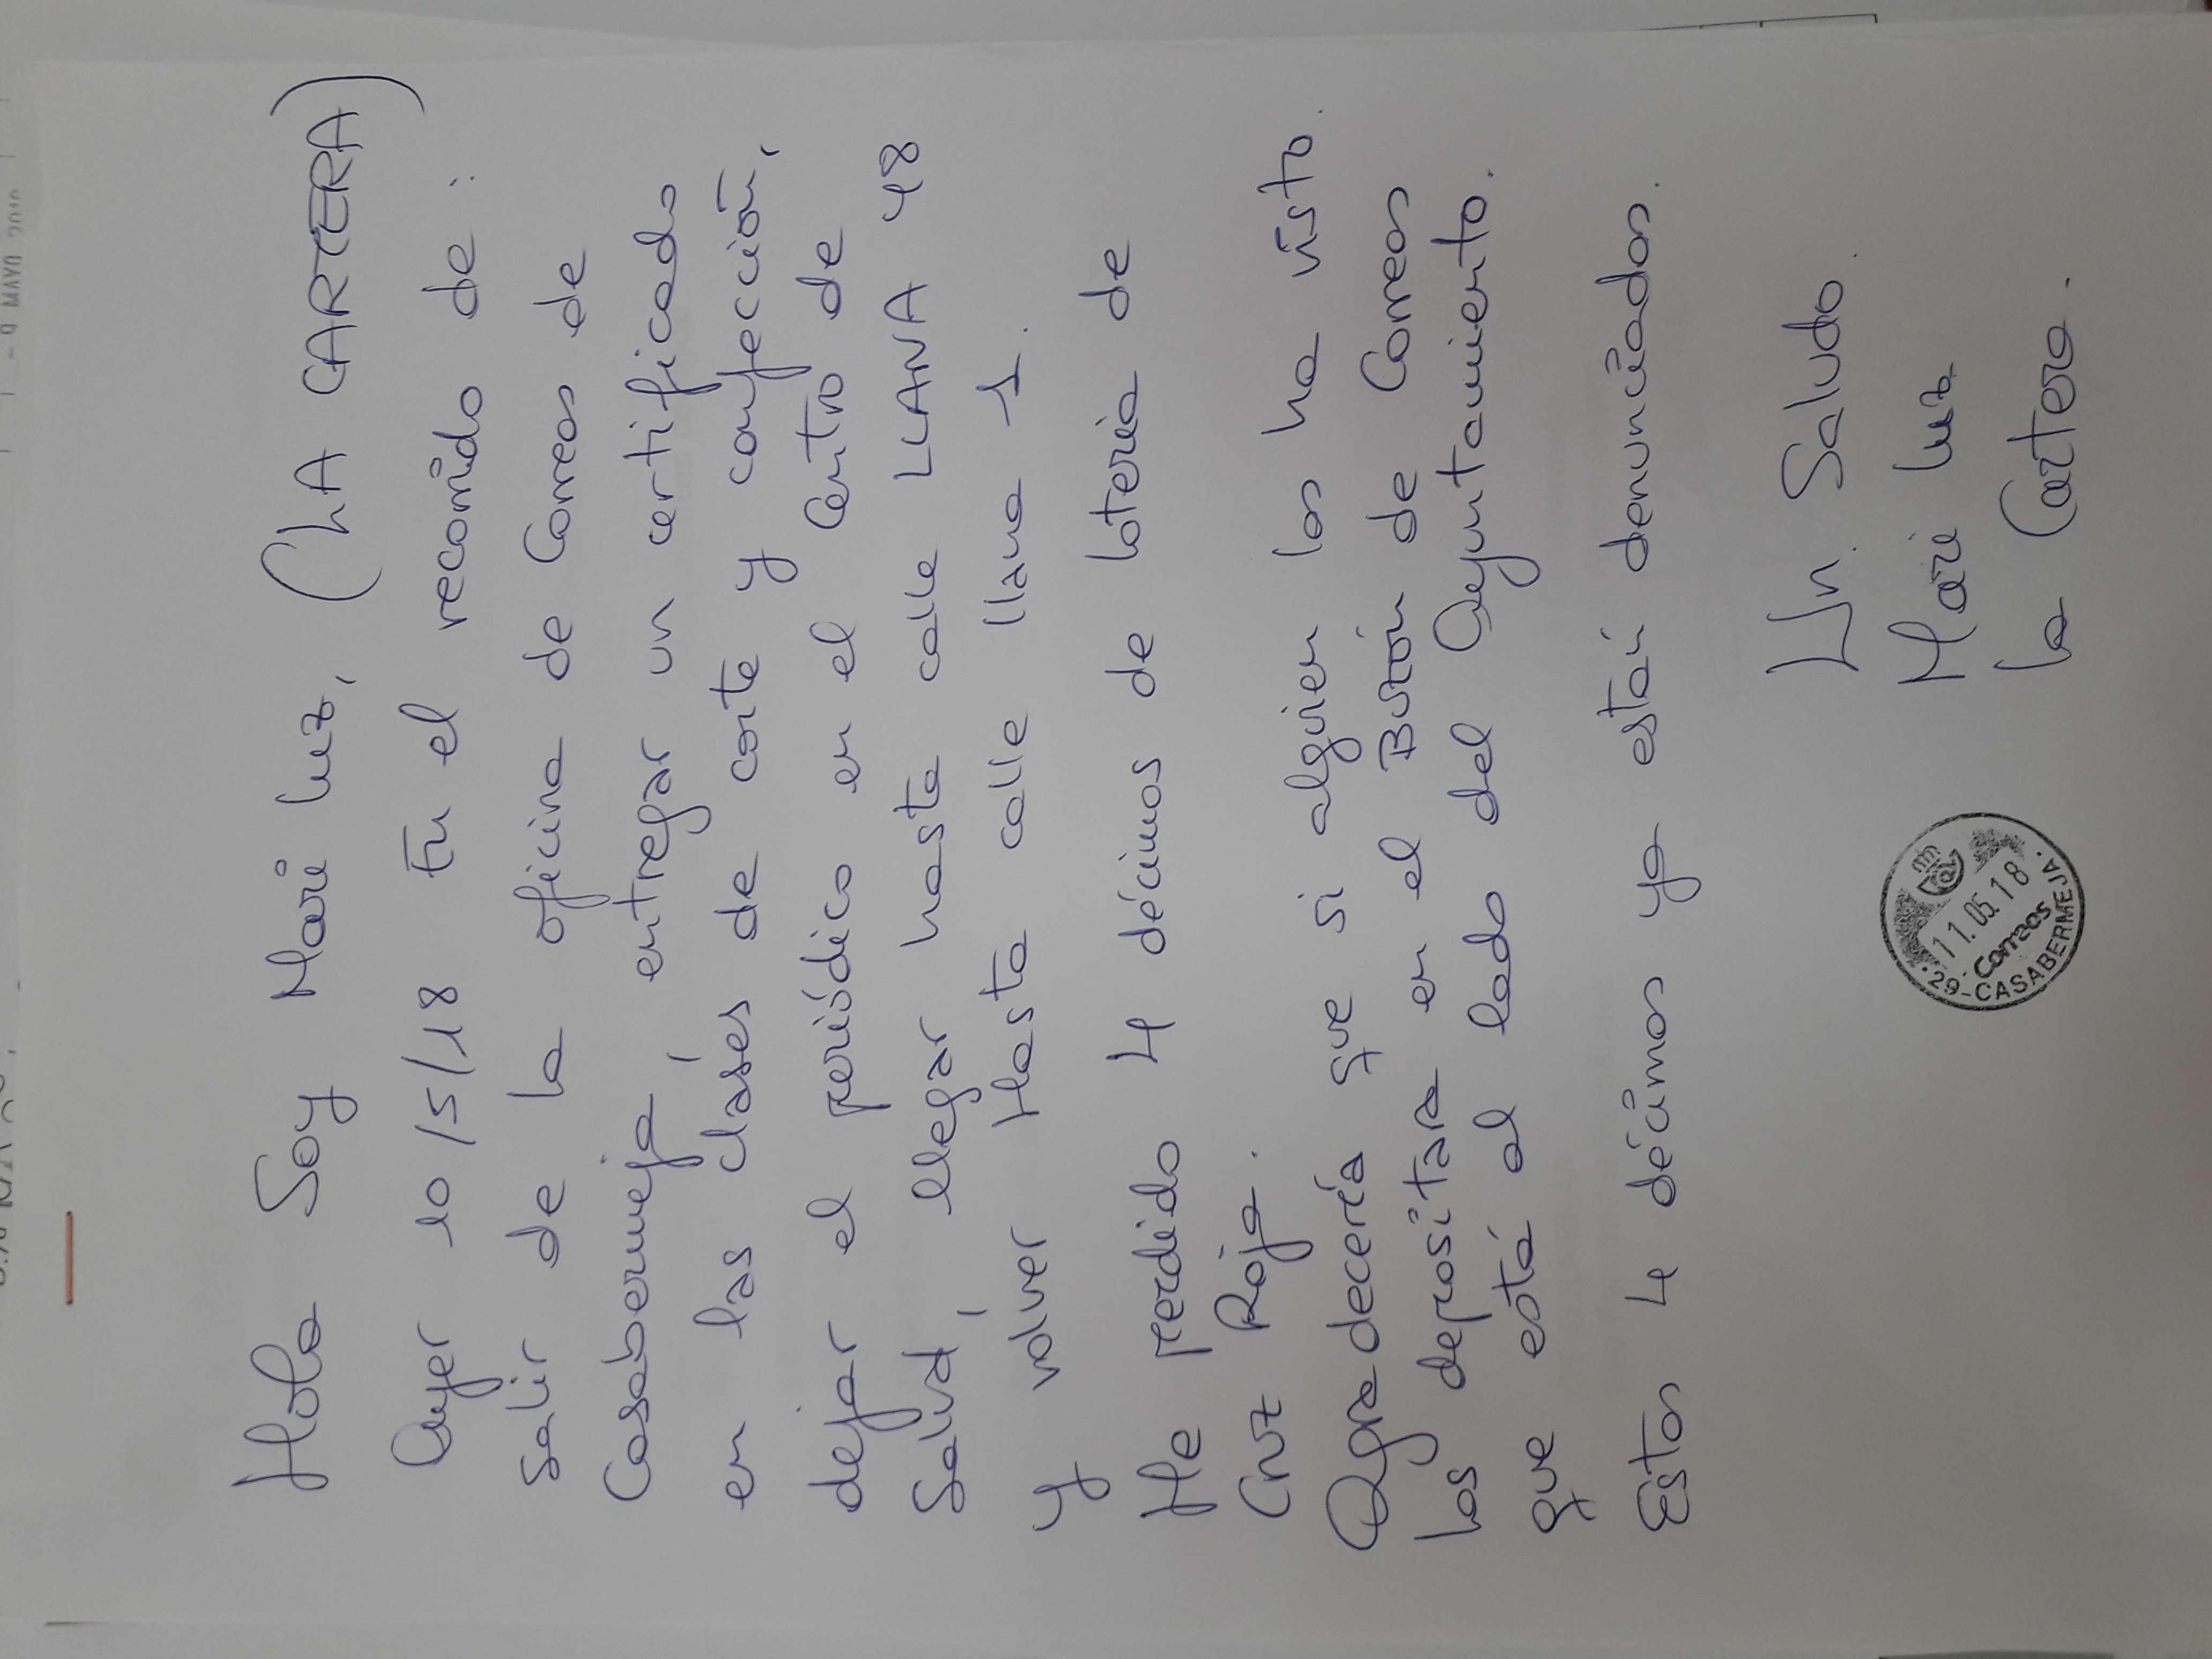 Hola Soy Mari Luz, (LA CARTERA)
Ayer 10/5/18 En el recorrido de:
Salir de la oficina de Correos de
Casabermeja, entregar un certificado
en las clases de corte y confección,
dejar el periódico en el Centro de
Salud, llegar hasta calle LLANA 48
y volver Hasta calle llana 1.
He perdido 4 décimos de lotería de
Cruz Roja.
Agradecería que si alguien los ha visto.
los depositara en el Buzón de Correos
que está al lado del Ayuntamiento.
Estos 4 décimos ya están denunciados.
Un Saludo.
Mari Luz
La Cartera.
11.05.18
Correos
29-CASABERMEJA.
- 9 MAYO